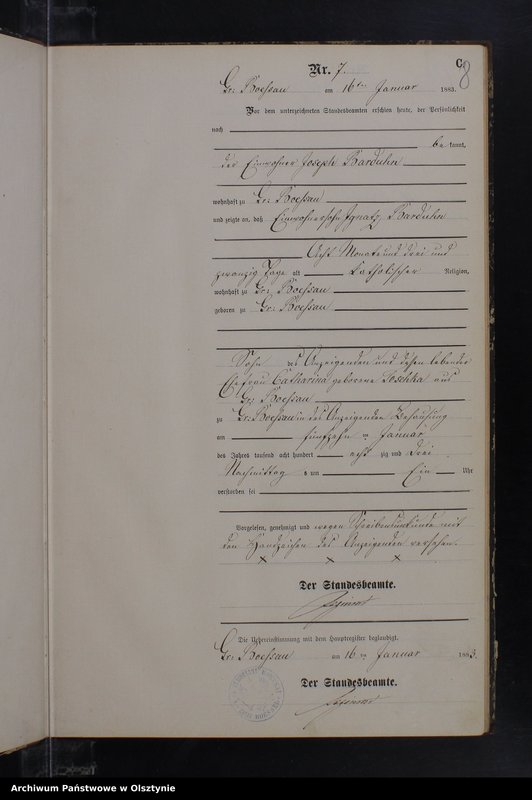 C.
8
Nr. 7.
Gr: Boessau am 16ten Januar 1883.
Vor dem unterzeichneten Standesbeamten erschien heute, der Persönlichkeit
nach
be kannt,
der Einwohner Joseph Barduhn
wohnhaft zu Gr: Boessau
und zeigte an, daß Einwohnersohn Ignatz Barduhn
Acht Monate und drei und
zwanzig Tage alt Katholischer Religion,
wohnhaft zu Gr: Boessau
geboren zu Gr: Boessau
Sohn des Anzeigenden und dessen lebender
Ehefrau Catharina geborene aus
Gr: Boessau
zu Gr: Boessau in des Anzeigenden Behausung
am fünfzehn ten Januar
des Jahres tausend acht hundert acht zig und drei
Nachmittag s um Ein Uhr
verstorben sei
Vorgelesen, genehmigt und wegen Schreibensunkunde mit
den Handzeichen des Anzeigenden versehen.
x x x
Der Standesbeamte.
Die Uebereinstimmung mit dem Hauptregister beglaubigt.
Gr: Boessau am 16ten Januar 1883.
Der Standesbeamte.
Archiwum Państwowe w Olsztynie